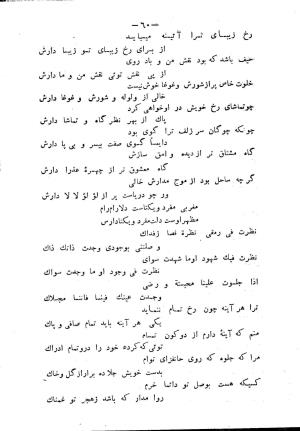 — ٦٠ —
رخ زیبای ترا آئینه میباید
از برای رخ زیبای تو زیبا دارش
حیف باشد که بود نقش من و باد روی
از پی نقش توئی نقش من و ما دارش
خلوت خاص پر از شورش و غوغا خوش نیست
خالی از ولوله و شورش و غوغا دارش
چو تماشای رخ خویش در او خواهی کرد
پاك از بهر نظر گاه و تماشا دارش
چونکه چوگان سر زلف ترا گوی بود
دایما گوی صفت بیسر و بی پا دارش
گاه مشتاق تر از دیده وامق سازش
گاه معشوق تر از چهرهٔ عذرا دارش
گر چه ساحل بود از موج مدارش خالی
ور چو دریاست پر از لؤلؤ لالا دارش
مغربی مفرد و یکتاست دلارام
مظهر اوست دلت مفرد و یکتا دارش
نظرت فی رمقی نظرة فصا فداك
و صلتنی بوجودی وجدت ذاتك ذاك
نظرت فیك شهود او ما شهدت سوای
نظرت فی وجود او ما وجدت سواك
اذا جلوت علینا محبتة و رضی
وجدت عینك فینا فاننا مجلاك
ترا هر آینه چون رخ تمام ننماید
یکی هر آینه باید تمام صافی و پاك
منم که آینهٔ دارم از دو کون تمام
توئی که کردهٔ خود را در او تمام ادراك
مرا که جلوه که روی جانفزای توام
بدست خویش جلا ده برار از گل و خاك
کسیکه هست بوصل تو دائما خرم
روا مدار که باشد زهجر تو غمناك